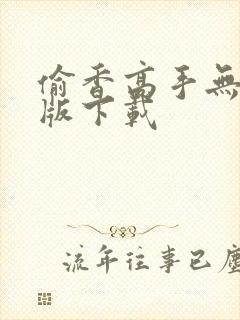 偷香高手無
版下載
流年往事已塵